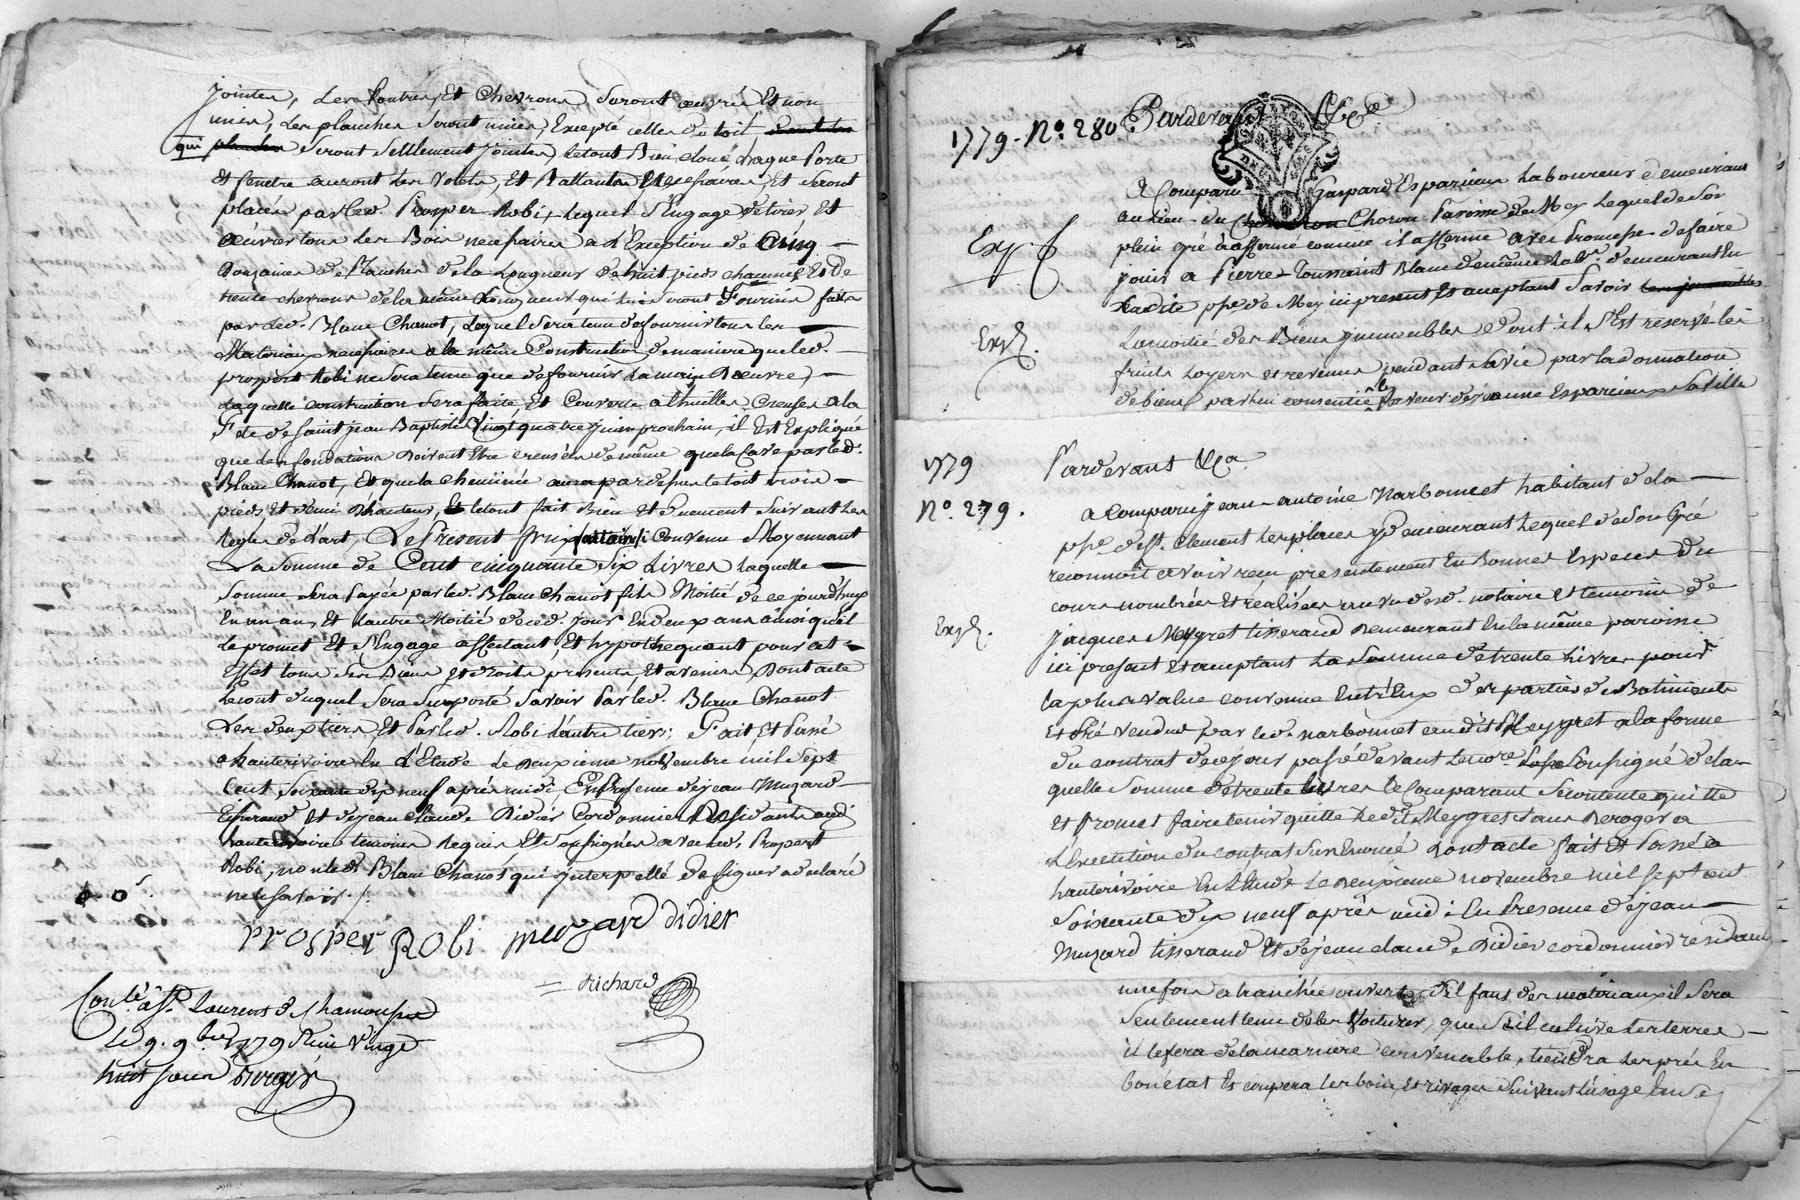 jointes, les Poutres, Et Chevrons seront œuvrés Et non
unies, Les planches seront unies, Excepté celles du toit
qui seront sellement jointes, letout Bien cloué chaque Porte
et fenetre auront Les volets, Et Battants Necessaires, Et seront
placés parled. Prosper Robi, Lequel S'Engage detirer Et
Œuvrer tous Les Bois necessaires a L'Exception de Cinq
douzaines de Planches dela Longueur dehuit pieds chacunes Et De
trente chevrons dela même Longueur qui lui seront Fournis faits
par Led. Blanc Chanot, Lequel Sera tenu defournir tous les
Materiaux necessaires a la même Construction demaniere queled.
prospert Robi ne Sera tenu que defournir La main Dœuvre,
Laquelle construction Sera faite, Et Couverte a thuilles Creuses ala
Fete de Saint jean Baptiste Vingt quatre juin prochain, il Est Expliqué
que des fondations doivent Etre creusées de même que la Cave par led.
Blanc Chanot, Et que la cheminée aura par dessus le toit trois
pieds et demi d'hauteur, Et letout fait Bien et duement Suivant Les
regles de L'art, Le Present prixfait ainsi Convenu Moyennant
La Somme de Cent cinquante Six Livres Laquelle
Somme Sera Payée par led. Blanc Chanot fils Moitié de ce jourd'huy
En un an, Et Lautre Moitié dece d. jour En deux ans ainsi quil
Le promet Et S'Engage affectant, Et hypothequant pour cet
Effet tous Ses Biens et droits presents, Et avenirs Dont acte
Le cout duquel Sera Suporté Savoir Par led. Blanc Chanot
Les deux tiers Et Par led. Robi Lautre tiers; Fait Et Passé
a hauterivoire En L'Etude Le deuxieme novembre mil Sept
Cent Soixante dix neuf après midi En Presence de jean Muzard
tisserand et de jean claude Didier Cordonnier Residants aud.
hauterivoire temoins Requis Et Soussignés avec led. Prospert
Robi, non led. Blanc Chanot qui Interpellé de Signer a declaré
ne le Savoir ./.
Prosper Robi muzard didier
richard
Con.lé à St. Laurent de Chamousset
le 9. 9bre 1779 Reçu vingt
huit sous
1779 - N°. 280. Pardevant &Ca
A Comparu Gaspard Esparcieux Laboureur demeurant
au Lieu du Choron Paroisse de Meys Lequel de Son
plein gré a affermé comme il afferme avec Promesse de faire
jouir a Pierre Toussaint Blanc de même Labr. demeurant En
Ladite psse de Meys ici present Et acceptant Savoir
La moitié des Biens ymmeubles dont il S'Est reservé les
fruits Loyers et revenus pendant Sa vie par la donnation
de biens par lui consentie En faveur de jeanne Esparcieux Sa fille
1779
N°. 279.
Pardevant &Ca
a Comparu jean antoine Narbonnet habitant de la
psse de St. Clement les places y demeurant Lequel de Son Gré
reconnoit avoir recu presentement En Bonnes Especes du
cours nombrées Et realisées au vu desd. notaire et temoins de
jacques Meygret tisserand demeurant En la même paroisse
ici present Et acceptant La Somme de trente Livres pour
la plus value convenue Entr'Eux des parties de Batiments
Et Pré vendus par led. narbonnet audit Meygret a la forme
du contrat de ce jour passé devant Le nore. Soussigné de la
quelle Somme de trente Livres le Comparant Se contente quitte
et Promet faire tenir quitte Ledit Meygret Sans Deroger a
L'Execution du contrat Sus Enoncé Dont acte fait Et Passé a
hauterivoire En L'Etude Le deuxieme novembre mil Sept cent
Soixante dix neuf après midi En Presence de jean
Muzard tisserand Et de jean claude Didier cordonnier residants
une fois a tranchée ouverte, S'il faut des matériaux il Sera
Seulement tenu de les Voiturer, que S'il cultive Les terres
il le fera de la maniere convenable, tiendra Les prés En
bon état Et coupera Les bois, Et rivages Suivant L'usage